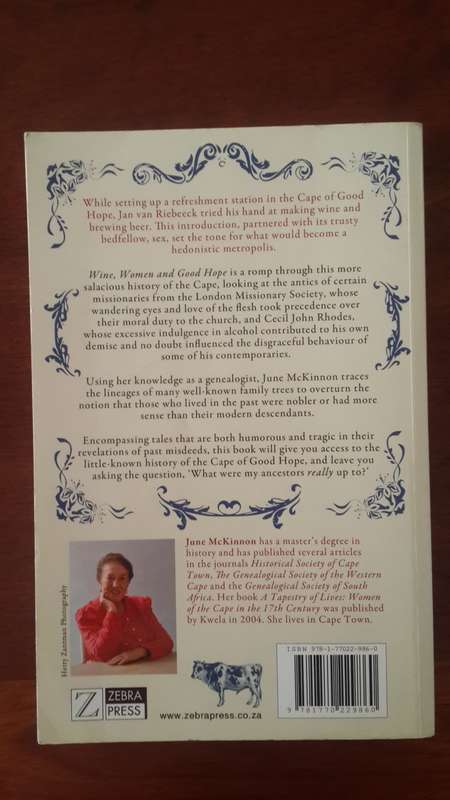 While setting up a refreshment station in the Cape of Good
Hope, Jan van Riebeeck tried his hand at making wine and
brewing beer. This introduction, partnered with its trusty
bedfellow, sex, set the tone for what would become a
hedonistic metropolis.
Wine, Women and Good Hope is a romp through this more
salacious history of the Cape, looking at the antics of certain
missionaries from the London Missionary Society, whose
wandering eyes and love of the flesh took precedence over
their moral duty to the church, and Cecil John Rhodes,
whose excessive indulgence in alcohol contributed to his own
demise and no doubt influenced the disgraceful behaviour of
some of his contemporaries.
Using her knowledge as a genealogist, June McKinnon traces
the lineages of many well-known family trees to overturn the
notion that those who lived in the past were nobler or had more
sense than their modern descendants.
Encompassing tales that are both humorous and tragic in their
revelations of past misdeeds, this book will give you access to the
little-known history of the Cape of Good Hope, and leave you
asking the question, 'What were my ancestors really up to?'
June McKinnon has a master's degree in
history and has published several articles
in the journals Historical Society of Cape
Town, The Genealogical Society of the Western
Cape and the Genealogical Society of South
Africa. Her book A Tapestry of Lives: Women
of the Cape in the 17th Century was published
by Kwela in 2004. She lives in Cape Town.
Hetty Zantman Photography
Z
ZEBRA
PRESS
www.zebrapress.co.za
ISBN 978-1-77022-986-0
9 781770 229860